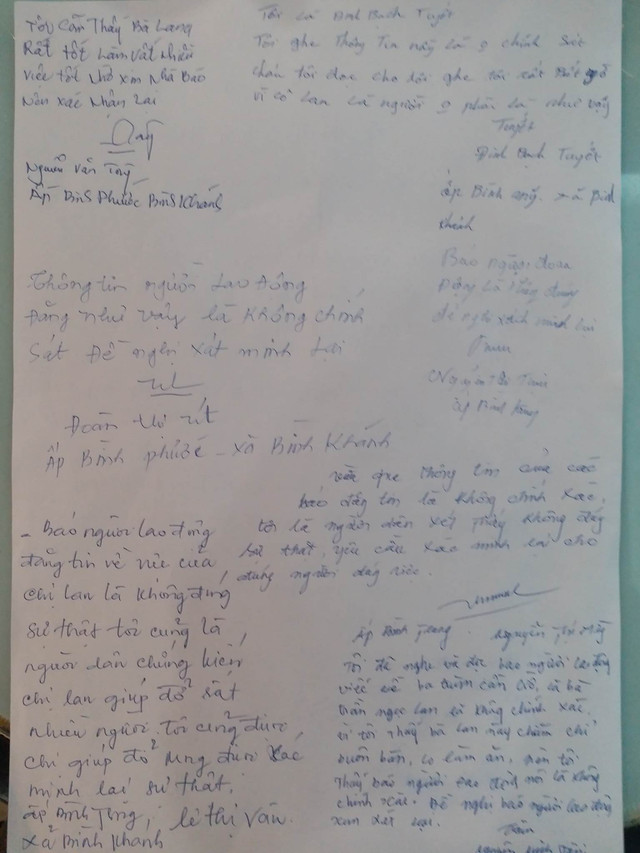 Tôi Cần Thấy Bà Lang
Rất Tốt Làm Rất Nhiều
việc tốt Nhờ xm Nhà Báo
Nên Xác Nhận Lại
Quý
Nguyễn Văn
Ấp Bình Phước Bình Khánh
Tôi là Đinh Bạch Tuyết
Tôi nghe Thông Tin này là o chính Sát
cho tôi nghe tôi rất
vì cô lan là người o phải là như vậy
Tuyết
Đinh Bạch Tuyết
ấp Bình xã Bình
Khánh
Thông tin người Lao Động
Đăng như vậy là không chính
sát Đề nghị xát minh lại
út
Đoàn Thị út
Ấp Bình phước - xã Bình Khánh
Báo người
Động là không đúng
đề nghị xách minh lại
Nguyễn Thị
ấp Bình
vừa qua thông tin của các
báo đăng tin là không chính xác,
tôi là người dân xét thấy không đúng
sự thật, yêu cầu xác minh lại cho
đúng người đúng việc.
Ấp Bình Trung Nguyễn Thị
- Báo người lao động
đăng tin về việc của
chị lan là không đúng
sự thật tôi cũng là
người dân chứng kiến
chị lan giúp đỡ rất
nhiều người. tôi cũng được
chị giúp đỡ mong được xác
minh lại sự thật,
ấp Bình lê thị Vân.
xã Bình Khánh
Tôi đề nghị và đọc báo người lao động
viết về bà trùm cần cỗ, là bà
trần ngọc lan là không chính xác.
vì tôi thấy bà lan này chăm chỉ
buôn bán, lo làm ăn, nên tôi
thấy báo người lao động nói là không
chính xác. Đề nghị báo người lao động
xem xét lại.